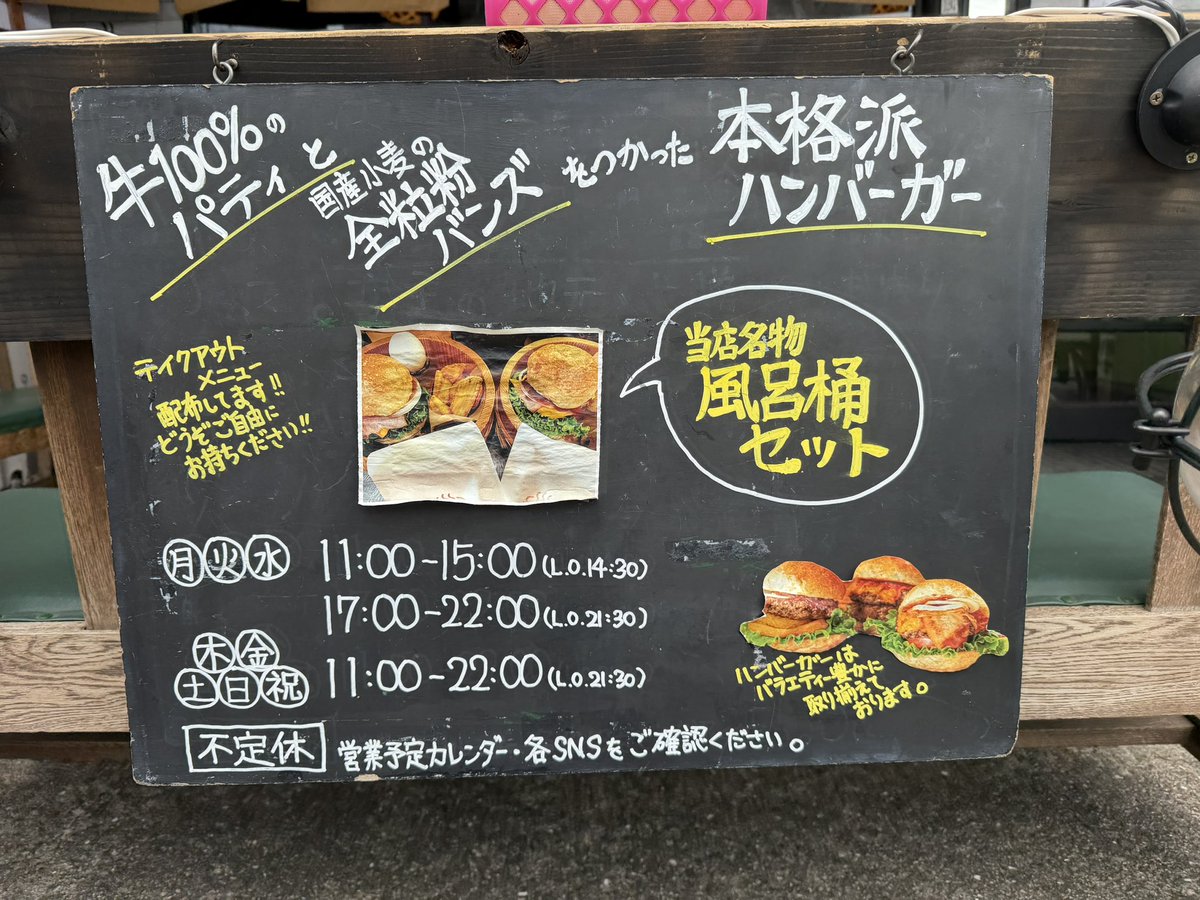 牛100%の
パティと
国産小麦の
全粒粉
バンズ
をつかった
本格派
ハンバーガー
テイクアウト
メニュー
配布してます!!
どうぞご自由に
お持ちください!!
当店名物
風呂桶
セット
月火水 11:00-15:00(L.O.14:30)
17:00-22:00(L.O.21:30)
木金
土日祝 11:00-22:00(L.O.21:30)
ハンバーガーは
バラエティー豊かに
取り揃えて
おります。
不定休 営業予定カレンダー・各SNSをご確認ください。